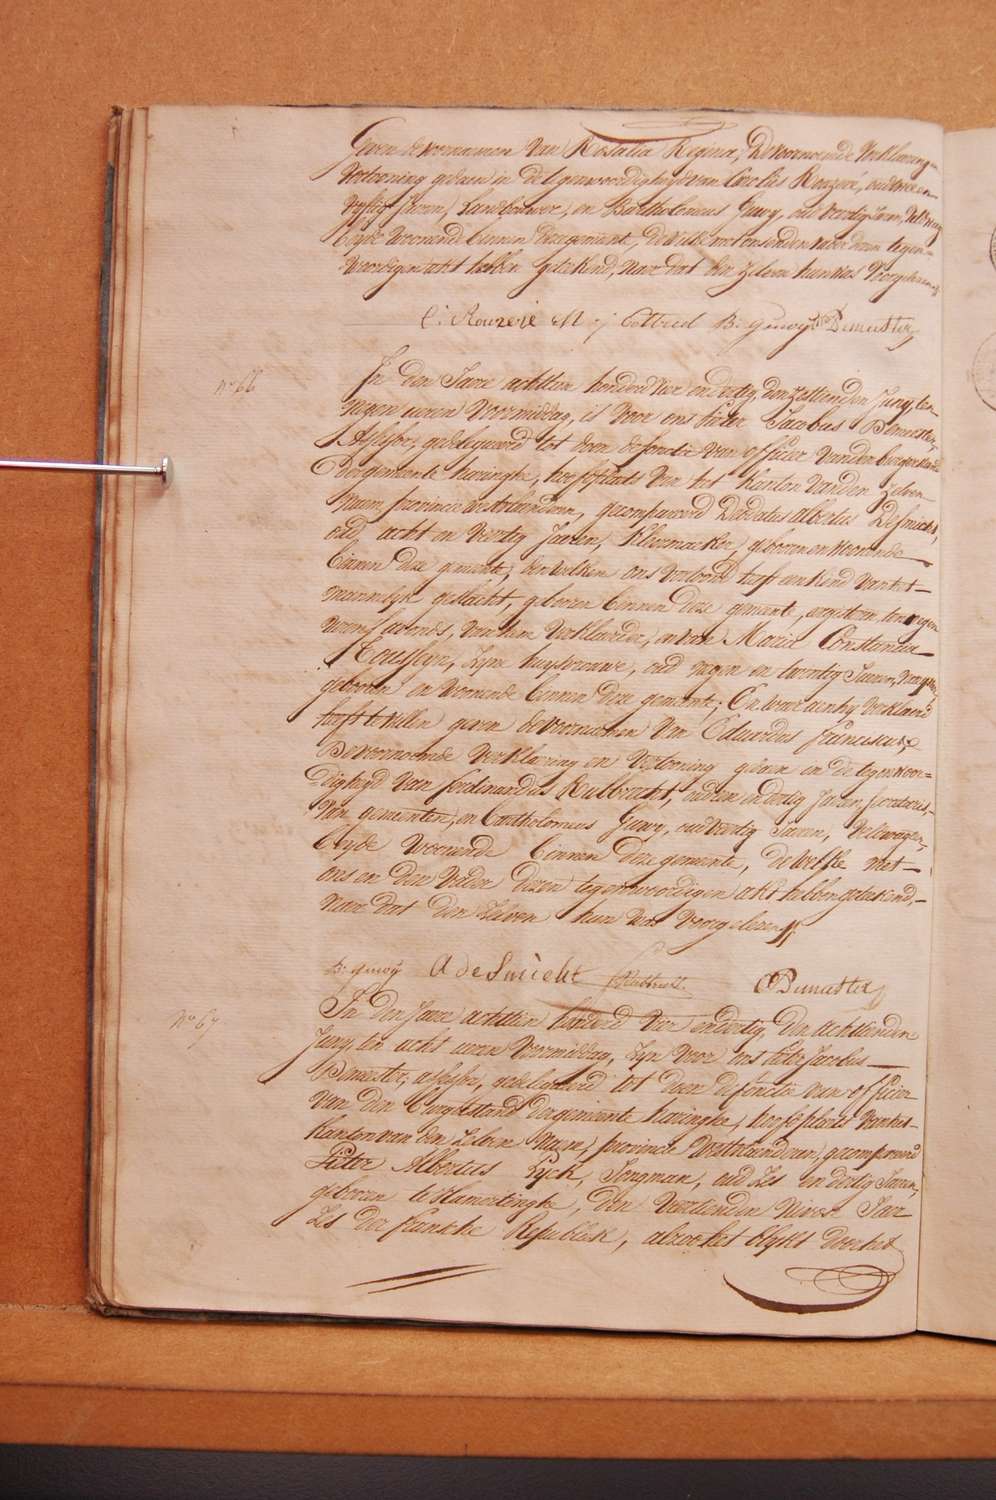 geven de voornamen van Rosalia Regina, De voornoemde verklaering en
vertooning gedaen in de tegenwoordigheyd van Carolus Rouzeré, oud twee en
vyftig Jaren, Landbouwer, en Bartholomeus Guwy, oud veertig Jaren,
beyde woonende binnen deze gemeente, de welke met ons en den vader dezen tegen-
woordigen akt hebben geteekend, naer dat den zelven hun was voorgelezen
C: Rouzeré M j Cottred B: guwÿ Demester
N.º 66
In den Jare achttien honderd vier en dertig, den zestienden Juny, ten
negen uren voormiddag, is voor ons Pieter Jacobus Demester,
Assessor, gedelegueerd tot doen de fonctie van officier van den burgerstand
der gemeente haringhe, hoofdplaets van het Kanton van den zelven
naem, provincie westvlaenderen, gecompareerd Deodatus albertus Desmicht,
oud, acht en veertig Jaren, Kleermaeker, geboren en woonende
binnen deze gemeente, den welken ons vertoond heeft een kind van het
mannelyk geslacht, geboren binnen deze gemeente, eergisteren ten negen
uren s'avonds, van hem verklaerder, en van Marie Constancia
Cousseyn, zyne huysvrouwe, oud negen en twintig Jaren,
geboren en woonende binnen deze gemeente; En waer aen hy verklaerd
heeft te willen geven de voornamen van Eduardus franciscus,
De voornoemde verklaering en vertooning gedaen in de tegenwoor=
digheyd van ferdinandus Rubbrecht, oud een en dertig Jaren, secretaris
van gemeenten, en Bartholomeus Guwy, oud veertig Jaren, veldwagter,
beyde woonende binnen deze gemeente, de welke met
ons en den vader dezen tegenwoordigen akt hebben geteekend,
naer dat den zelven hun was voorgelezen
B: guwÿ A de Smicht f Rubbrecht Demester
N.º 67
In den Jare achttien honderd vier en dertig, den achttienden
Juny, ten acht uren voormiddag, zyn voor ons Pieter Jacobus
Demester, assessor, gedelegueerd tot doen de fonctie van officier
van den burgerstand der gemeente haringhe, hoofdplaets van het
Kanton van den zelven naem, provincie Westvlaenderen, gecompareerd
Pieter Albertus Lyck, Jongman, oud zes en dertig Jaren,
geboren te Vlamertinghe, den veertienden Nivose Jaer
zes der fransche Republiek, alzoo het blykt door het